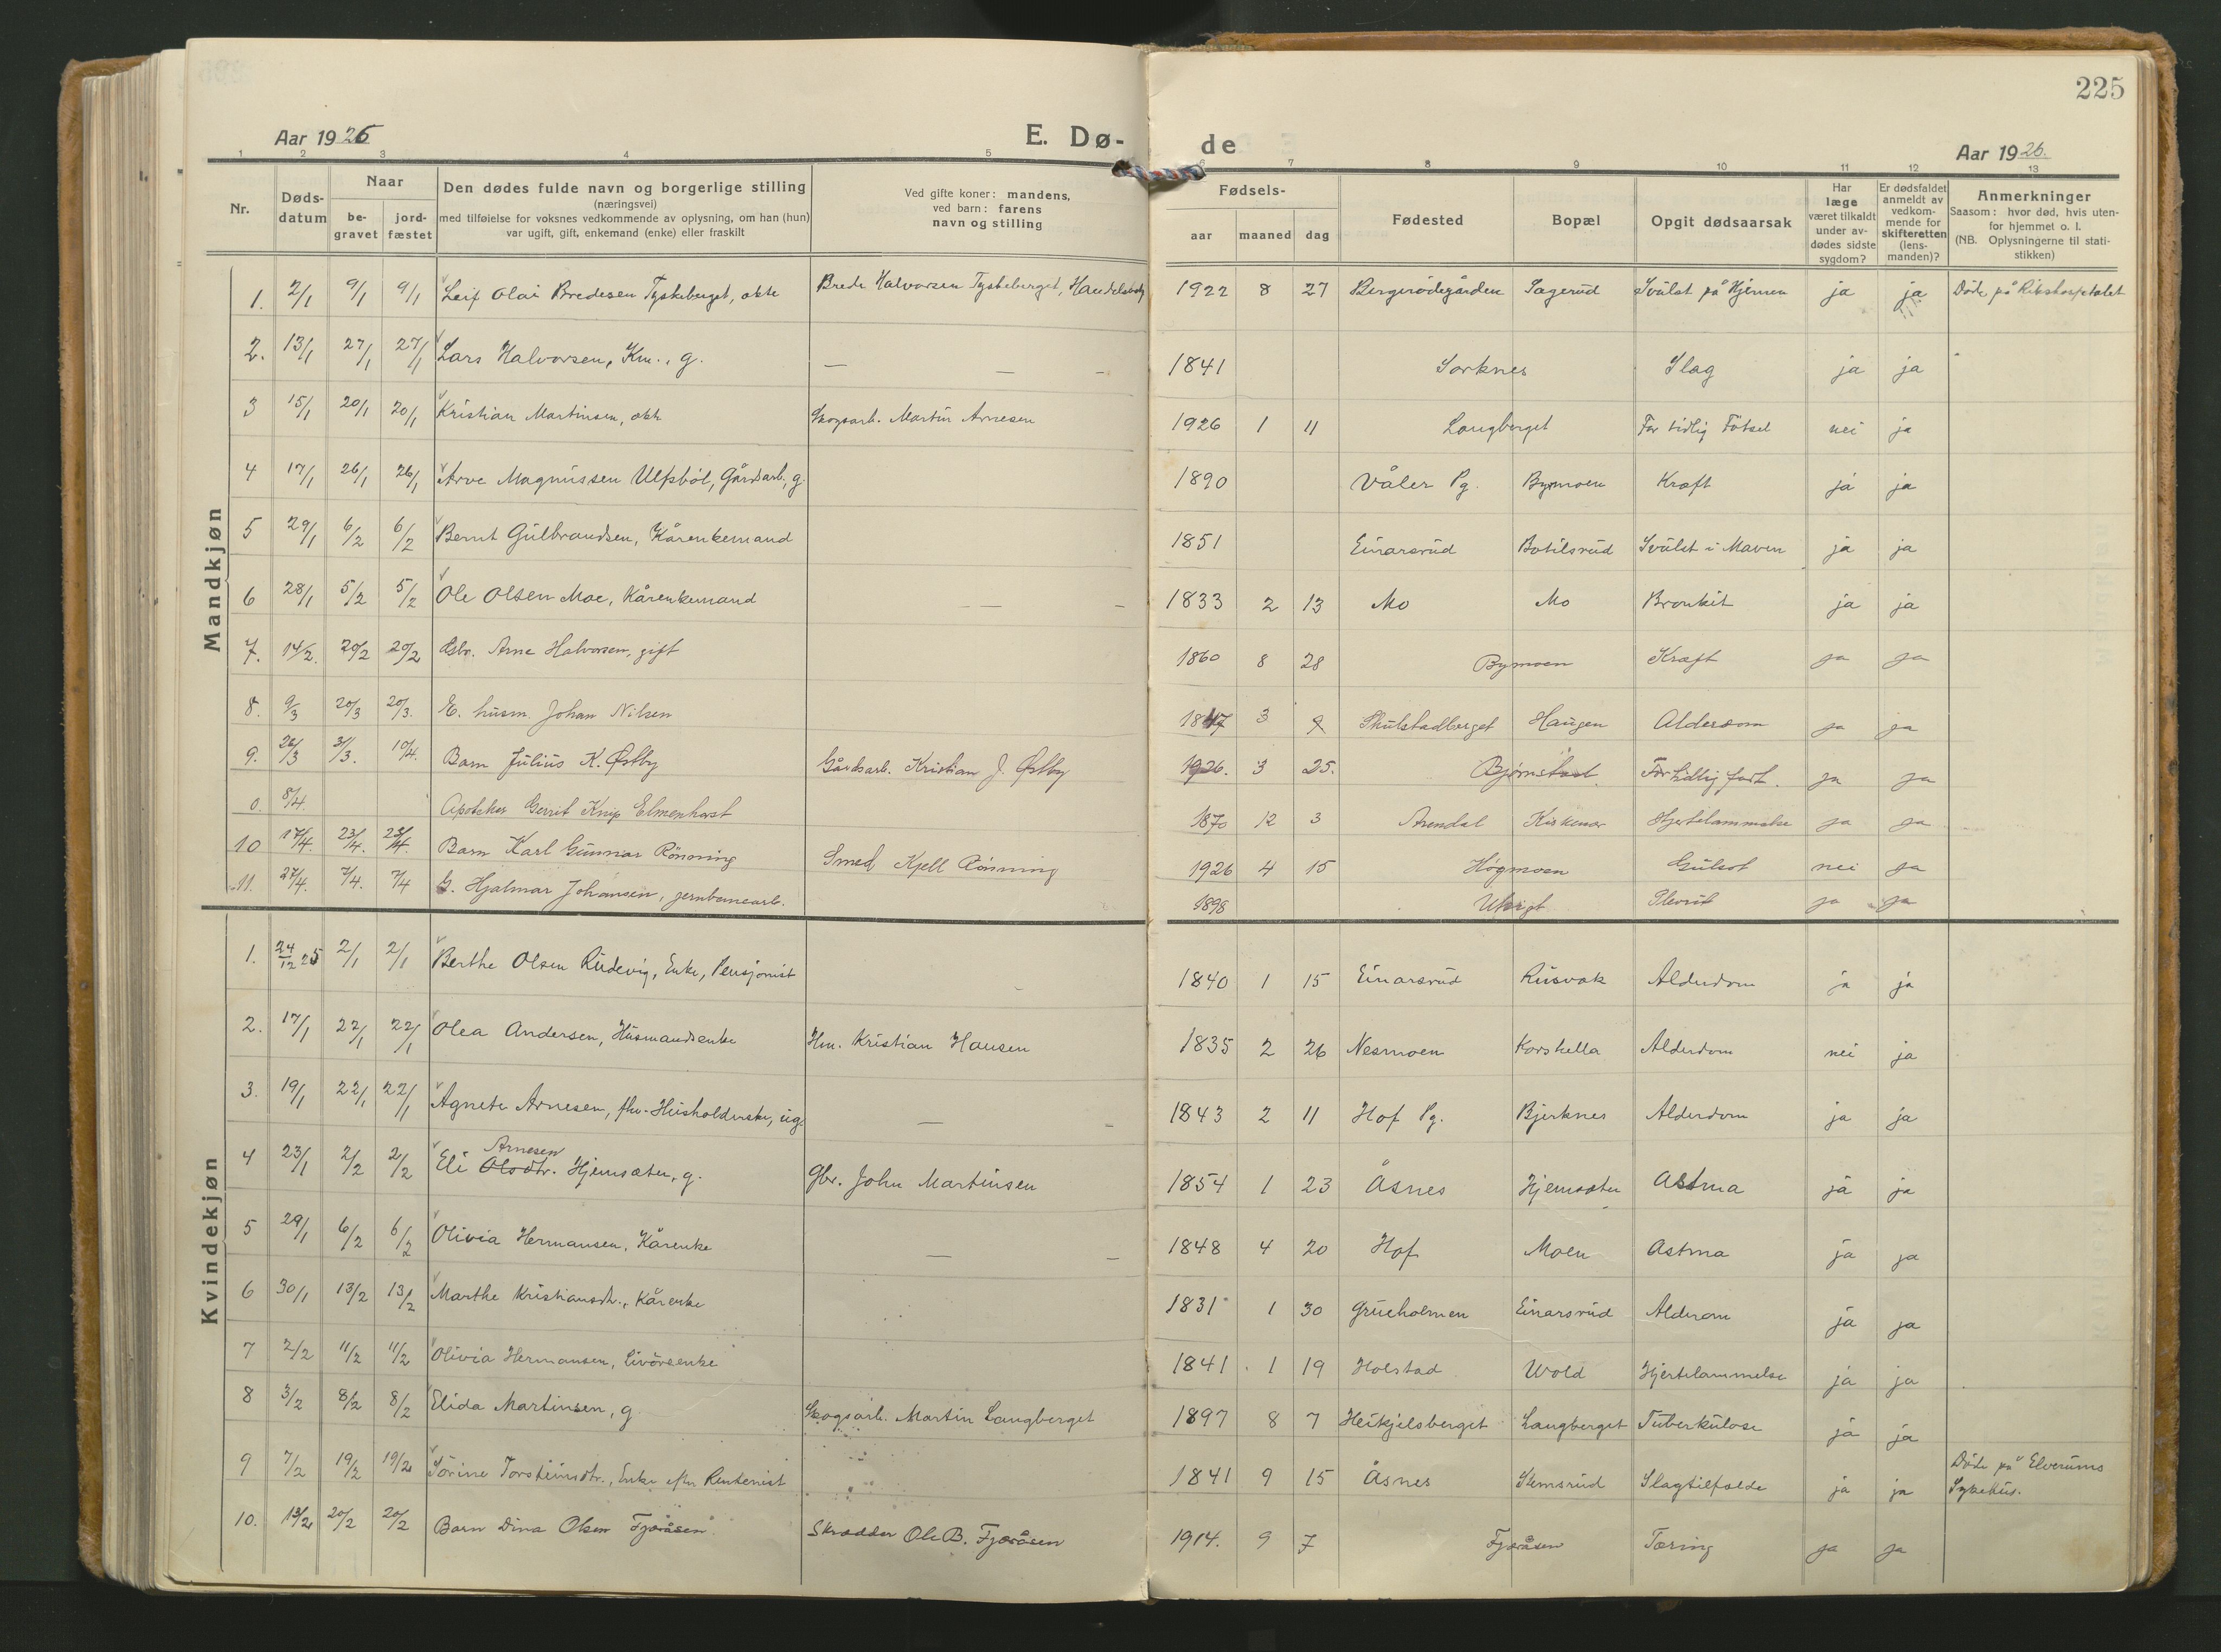 225
Aar 1926
E. Dø-
de
Aar 1926.
1 2 3 4 5 6 7 8 9 10 11 12 13
Nr.
Døds-
datum
Naar
be-
gravet
jord-
fæstet
Den dødes fulde navn og borgerlige stilling
(næringsvei)
med tilføielse for voksnes vedkommende av oplysning, om han (hun)
var ugift, gift, enkemand (enke) eller fraskilt
Ved gifte koner: mandens,
ved barn: farens
navn og stilling
Fødsels-
aar maaned dag
Fødested
Bopæl
Opgit dødsaarsak
Har
læge
været tilkaldt
under av-
dødes sidste
sygdom?
Er dødsfaldet
anmeldt av
vedkom-
mende for
skifteretten
(lens-
manden)?
Anmerkninger
Saasom: hvor død, hvis uten-
for hjemmet o. l.
(NB. Oplysningerne til stati-
stikken)
Mandkjøn
1. 2/1 9/1 9/1 Leif Olai Bredesen Tyskeberget, ekte Brede Halvorsen Tyskeberget, 1922 8 27 Bergerødegården Sagerud Svulst på Hjernen ja ja Døde på Rikshospitalet
2. 13/1 27/1 27/1 Lars Halvorsen, Km., g. — — — 1841 Sorknes Slag ja ja
3 15/1 20/1 20/1 Kristian Martinsen, ekte Skogsarb. Martin Arnesen 1926 1 11 Langberget For tidlig Fötsel nei ja
4 17/1 26/1 26/1 Arve Magnussen Ulfsböl, Gårdsarb., g. 1890 Våler Pg. Bymoen Kræft ja ja
5 29/1 6/2 6/2 Bernt Gulbrandsen, Kårenkemand 1851 Einarsrud Botilsrud Svulst i Maven ja ja
6 28/1 5/2 5/2 Ole Olsen Moe, Kårenkemand — — 1833 2 13 Mo Mo Bronkit ja ja
7. 14/2. 20/2 20/2 Gbr. Arne Halvorsen, gift 1860 8 28 Bymoen Kræft ja ja
8. 9/3 20/3 20/3. E. husm. Johan Nilsen 1847 3 9 Skulstadberget Haugen Alderdom ja ja
9. 26/3 31/3. 10/4. Barn Julius K. Østby Gårdsarb. Kristian J. Østby 1926. 3 25. Bjørnstad. For tidlig født. ja ja
0. 8/4. Apoteker Gerrit Knip Elmenhorst 1870 12 3 Arendal Kirkenær Hjertelammelse ja ja
10 17/4. 23/4. 23/4. Barn Karl Gunnar Rönning Smed Kjell Rönning 1926 4 15 Högmoen Gulsot nei ja
11. 27/4. 7/4. 7/4 G. Hjalmar Johansen, jernbanearb. 1898 Plevrit ja ja
Kvindekjøn
1. 24/12 25 2/1 2/1 Berthe Olsen Rudevig, Enke, Pensjonist 1840 1 15 Einarsrud Rusvak Alderdom ja ja
2. 17/1 22/1 22/1 Olea Andersen, Husmandsenke Hm. Kristian Hansen 1835 2 26 Nesmoen Korshella Alderdom nei ja
3. 19/1 22/1 22/1 Agnete Arnesen, fhv. Husholderske, ug. — — 1843 2 11 Hof Pg. Bjerknes Alderdom ja ja
Arnesen
4 23/1 2/2 2/2 Eli Olsdtr. Hjemsæter, g. Gbr. John Martinsen 1854 1 23 Åsnes Hjemsæter Astma ja ja
5 29/1 6/2 6/2 Olivia Hermansen, Kårenke — — 1848 4 20 Hof Moen Astma ja ja
6 30/1 13/2 13/2 Marthe Kristiansdtr., Kårenke 1831 1 30 Grueholmen Einarsrud Alderom ja ja
7 2/2 11/2 11/2 Olivia Hermansen, Livörsenke 1841 1 19 Holstad Wold Hjertelammelse ja ja
8 3/2 8/2 8/2 Elida Martinsen, g. Skogsarb. Martin Langberget 1897 8 7 Heikjelsberget Langberget Tuberkulose ja ja
9 7/2 19/2 19/2 Sörine Torsteinsdtr., Enke efter Rentenist 1841 9 15 Åsnes Stemsrud Slagtilfælde ja ja Döde på Elverums
Sykehus.
10. 13/2 20/2 20/2 Barn Dina Olsen Fjæråsen Skrædder Ole B. Fjæråsen 1914. 9 7 Fjæråsen Tæring ja ja